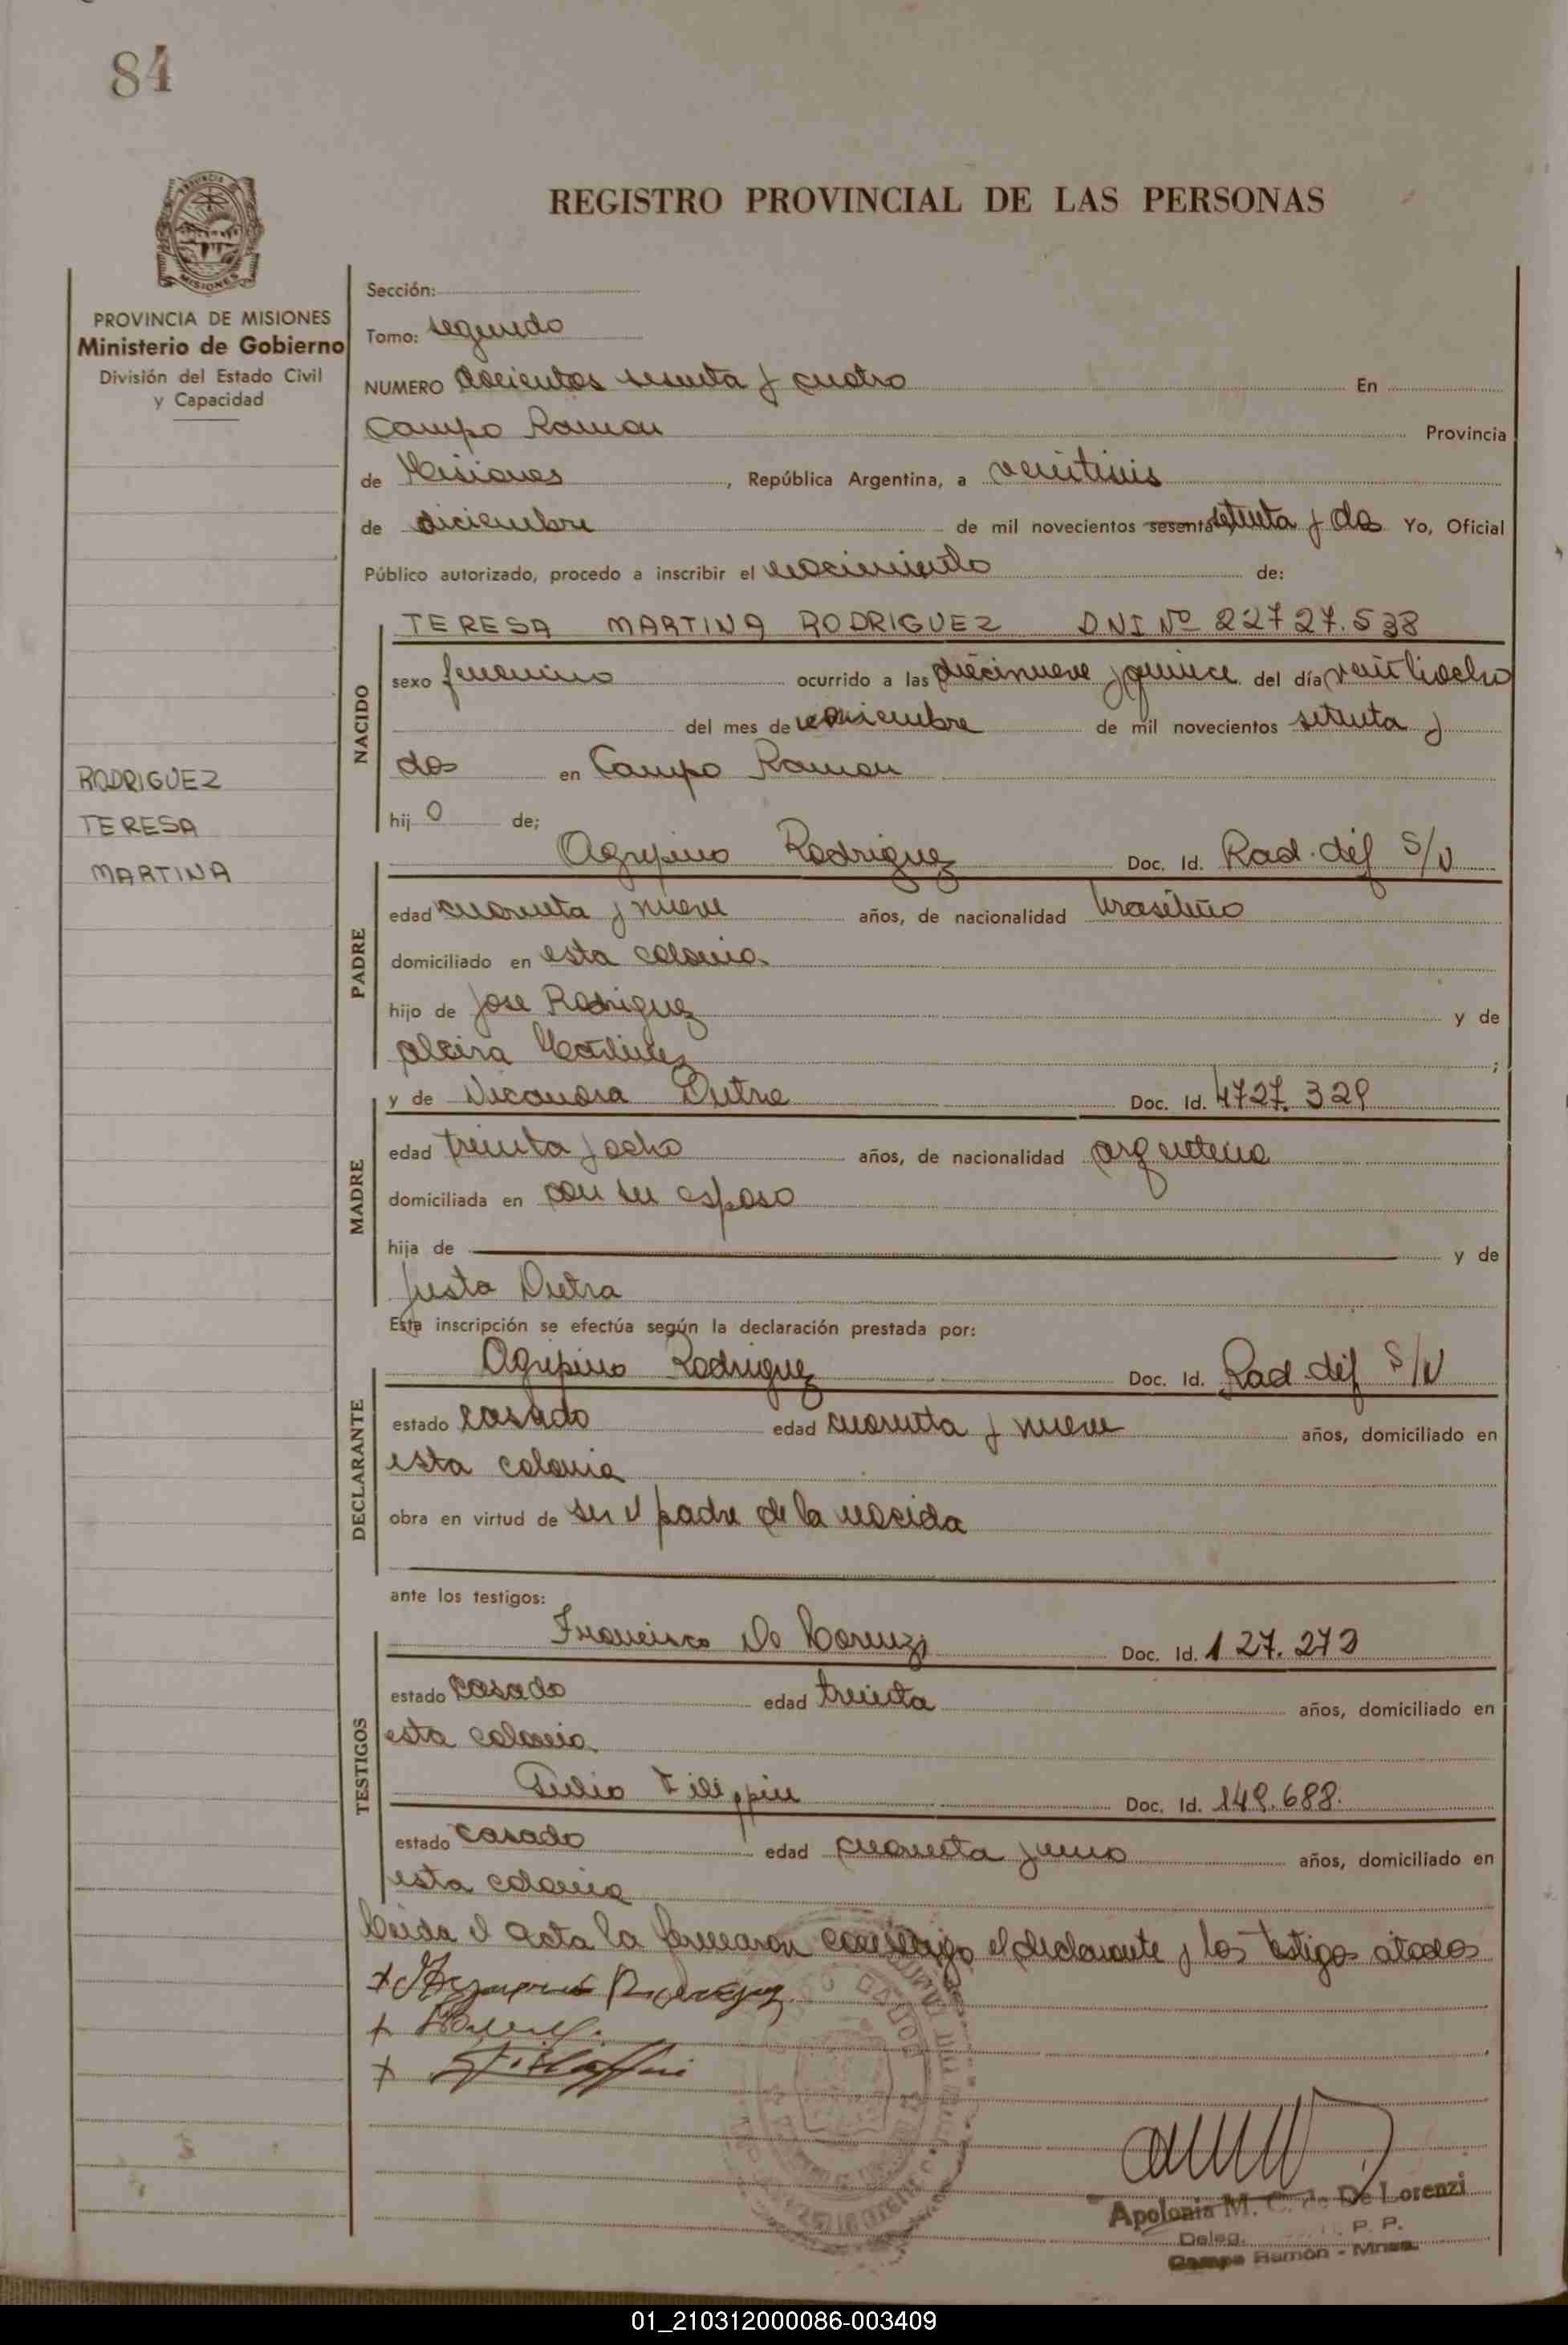 84
REGISTRO PROVINCIAL DE LAS PERSONAS
MISIONES
PROVINCIA DE MISIONES
Ministerio de Gobierno
División del Estado Civil
y Capacidad
RODRIGUEZ
TERESA
MARTINA
Sección:
Tomo: segundo
NUMERO doscientos sesenta y cuatro En
Campo Ramon Provincia
de Misiones, República Argentina, a veintiseis
de diciembre de mil novecientos sesenta setenta y dos Yo, Oficial
Público autorizado, procedo a inscribir el nacimiento de:
NACIDO
TERESA MARTINA RODRIGUEZ DNI Nº 22727.538
sexo femenino ocurrido a las diecinueve y quince del día veintiocho
del mes de noviembre de mil novecientos setenta y
dos en Campo Ramon
hij o de;
PADRE
Agripino Rodriguez Doc. Id. Rad. dif S/N
edad cuarenta y nueve años, de nacionalidad brasileño
domiciliado en esta colonia
hijo de Jose Rodriguez y de
Alcira Martinez ;
MADRE
y de Nicandra Dutra Doc. Id. 4727.329
edad treinta y ocho años, de nacionalidad argentina
domiciliada en con su esposo
hija de y de
Justa Dutra
Esta inscripción se efectúa según la declaración prestada por:
DECLARANTE
Agripino Rodriguez Doc. Id. Rad. dif S/N
estado casado edad cuarenta y nueve años, domiciliado en
esta colonia
obra en virtud de ser el padre de la nacida
ante los testigos:
TESTIGOS
Francisco De Lorenzi Doc. Id. 127.273
estado casado edad treinta años, domiciliado en
esta colonia
Tulio Filippin Doc. Id. 149.688.
estado casado edad cuarenta y uno años, domiciliado en
esta colonia
Leida el acta la firmaron conmigo el declarante y los testigos citados
Apolonia M. C. de De Lorenzi
Deleg. P. P.
Campo Ramón - Mnes.
01_210312000086-003409